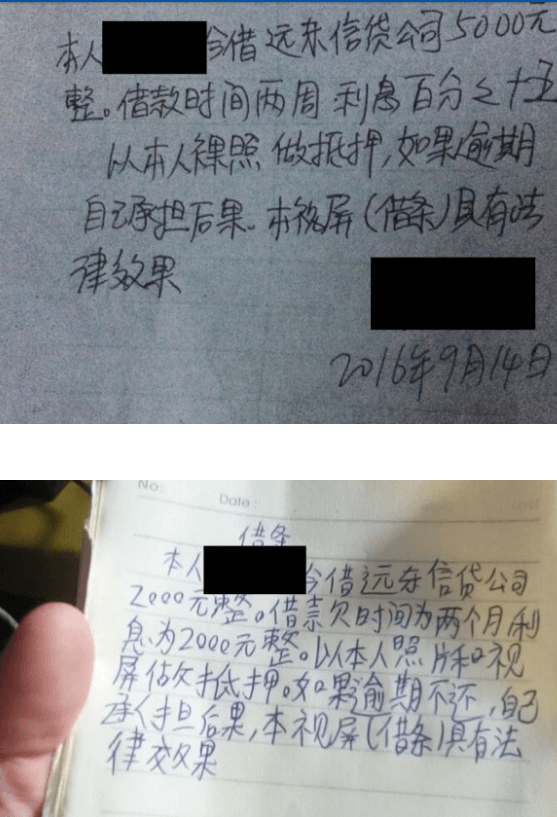 本人 今借 远东信贷公司5000元
整。借款时间两周 利息百分之十五
以本人裸照 做抵押,如果逾期
自己承担后果. 本视屏(借条)具有法
律效果
2016年9月14日
No:
Date:
借条
本人 今借远东信贷公司
2000元整。借款时间为两个月利
息为2000元整。以本人照片和视
屏做抵押。如果逾期不还,自己
承担后果,本视屏(借条)具有法
律效果